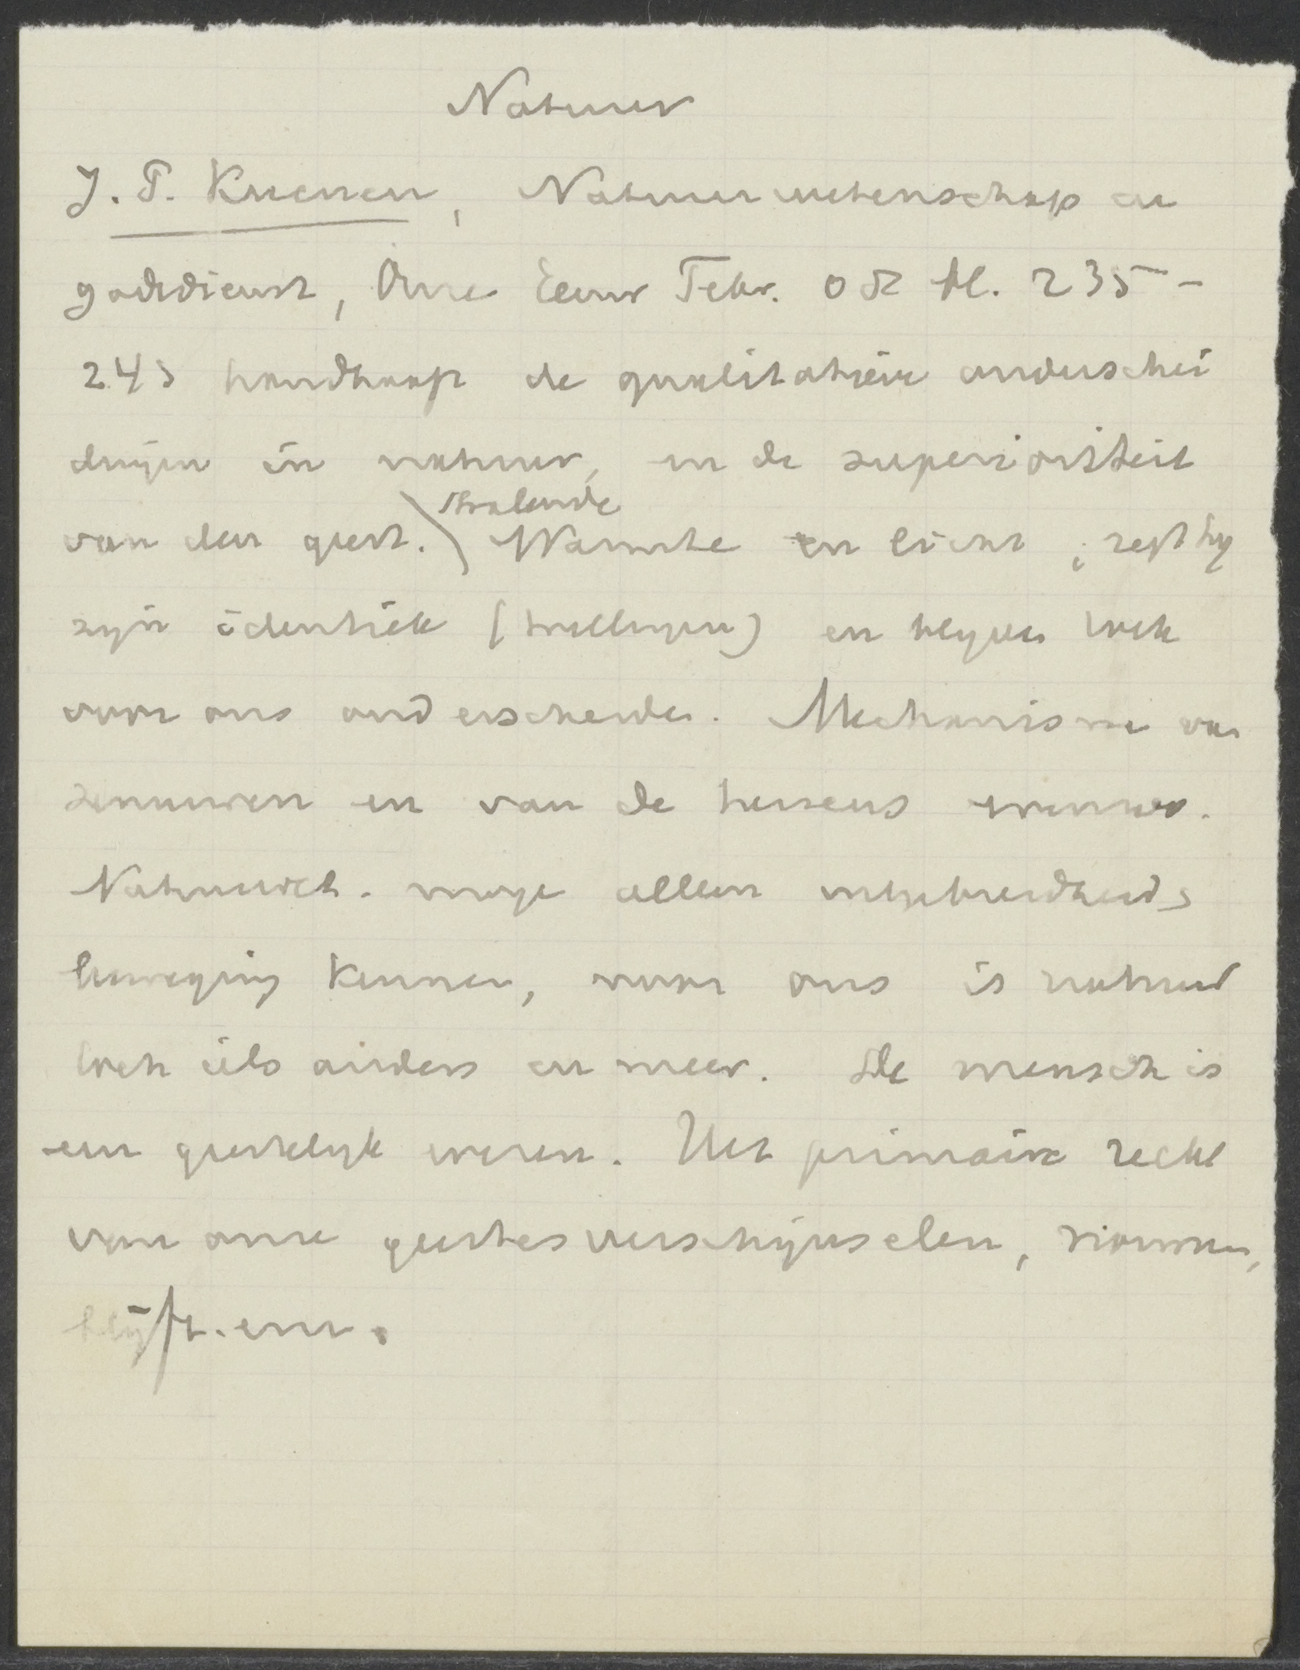 Natuur
J. P. Kuenen, Natuurwetenschap en
godsdienst, Onze Eeuw Febr. 08 bl. 235-
243 handhaaft de qualitatieve onderschei
dingen in natuur, en de superioriteit
van den geest. Stralende Warmte en licht, zegt hij
zijn identiek (trillingen) en blijven toch
voor ons onderscheiden. Mechanisme van
zenuwen en van de hersens
Natuurwet. moge alleen uitgebreidheid &
beweging kennen, voor ons is natuur
toch iets anders en meer. De mensch is
een geestelijk wezen. Het primaire recht
van onze geestesverschijnselen,
blijft. enz.